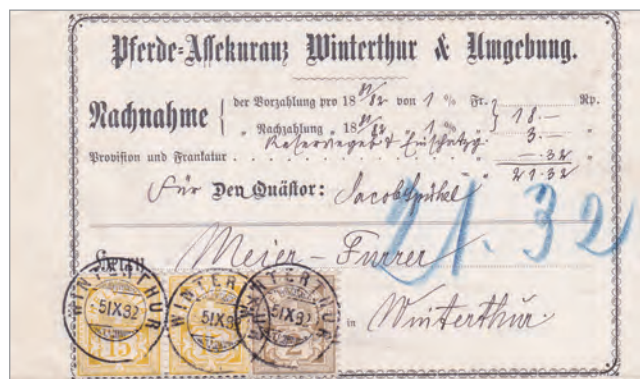 Pferde-Assekuranz Winterthur & Umgebung.
Nachnahme
der Vorzahlung pro 18 81/82 von 1 % Fr. 18.— Rp.
" Nachzahlung " 18 81/82 " 1 % "
3.— "
Provision und Frankatur . . . . . . . . . . " —.32 "
" 21.32 "
Für Den Quästor: Jacob
21.32
Herrn Meier-Furrer
in Winterthur.
WINTERTHUR
5 IX 82
15
WINTERTHUR
5 IX 82
WINTERTHUR
5 IX 82
2